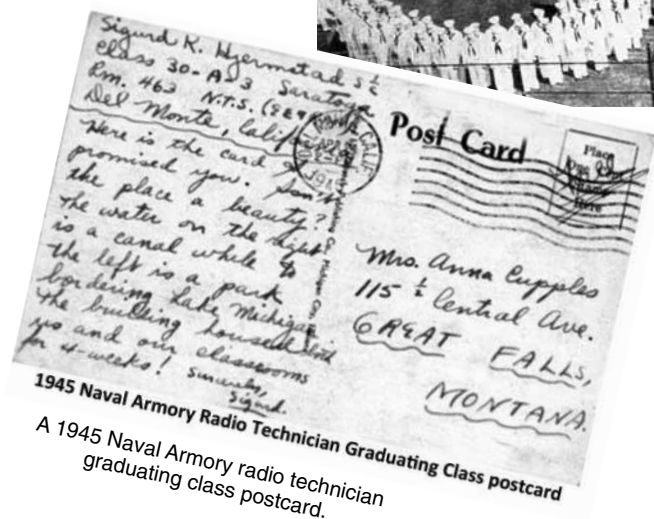 Sigurd K. Hjermstad S ½ c
Class 30-A-3 Saratoga
Rm. 463 N.T.S.
Del Monte, Calif.
Here is the card I
promised you. Isn't
the place a beauty?
The water on the right
is a canal while to
the left is a park
bordering Lake Michigan
The building housed
us and our classrooms
for 4-weeks!
Sincerely,
Sigurd.
CALIF
Post Card
Place
Here
Mrs. Anna Cupples
115 ½ Central Ave.
GREAT FALLS,
MONTANA.
1945 Naval Armory Radio Technician Graduating Class postcard
A 1945 Naval Armory radio technician
graduating class postcard.